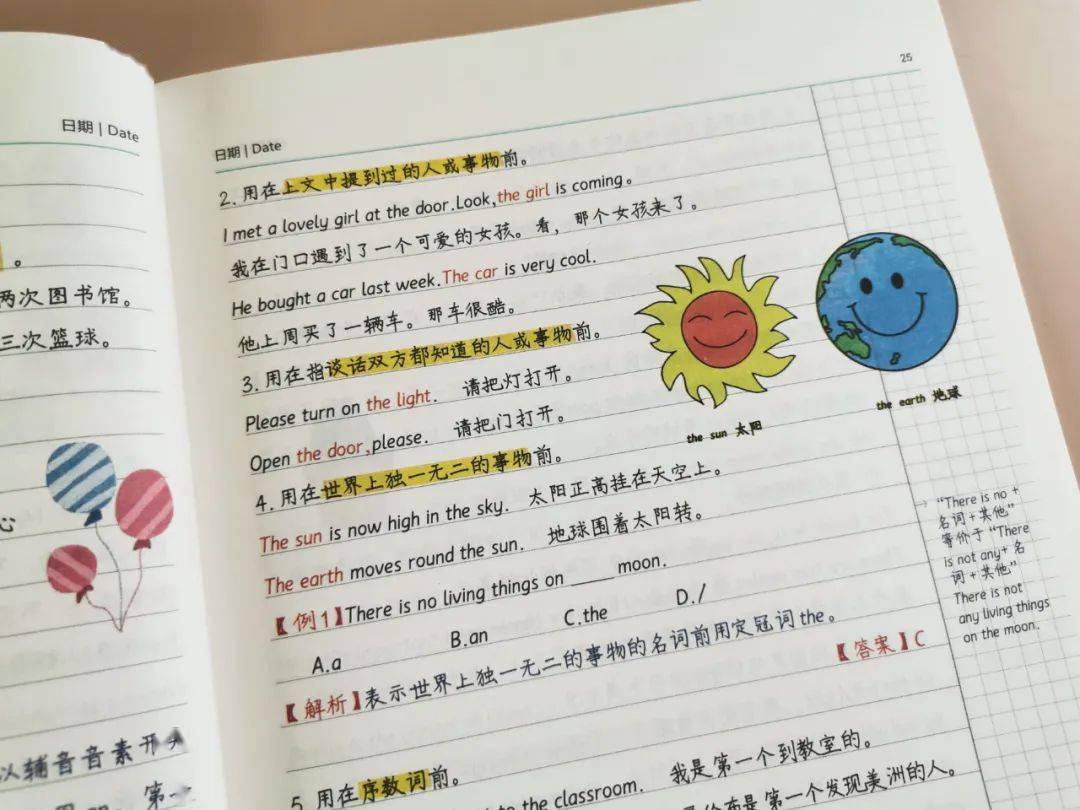 日期 | Date
。
两次图书馆。
三次篮球。
心
以辅音音素开
第一
25
日期 | Date
2. 用在上文中提到过的人或事物前。
I met a lovely girl at the door.Look,the girl is coming。
我在门口遇到了一个可爱的女孩。看，那个女孩来了。
He bought a car last week.The car is very cool.
他上周买了一辆车。那车很酷。
3. 用在指谈话双方都知道的人或事物前。
Please turn on the light. 请把灯打开。
Open the door,please. 请把门打开。
4. 用在世界上独一无二的事物前。
The sun is now high in the sky. 太阳正高挂在天空上。
The earth moves round the sun. 地球围着太阳转。
【例1】There is no living things on ____ moon.
A.a B.an C.the D./
【解析】表示世界上独一无二的事物的名词前用定冠词the。
【答案】C
5. 用在序数词前。
to the classroom. 我是第一个到教室的。
是第一个发现美洲的人。
the sun 太阳
the earth 地球
"There is no +
名词+其他"
等价于"There
is not any+ 名
词+其他"
There is not
any living things
on the moon.